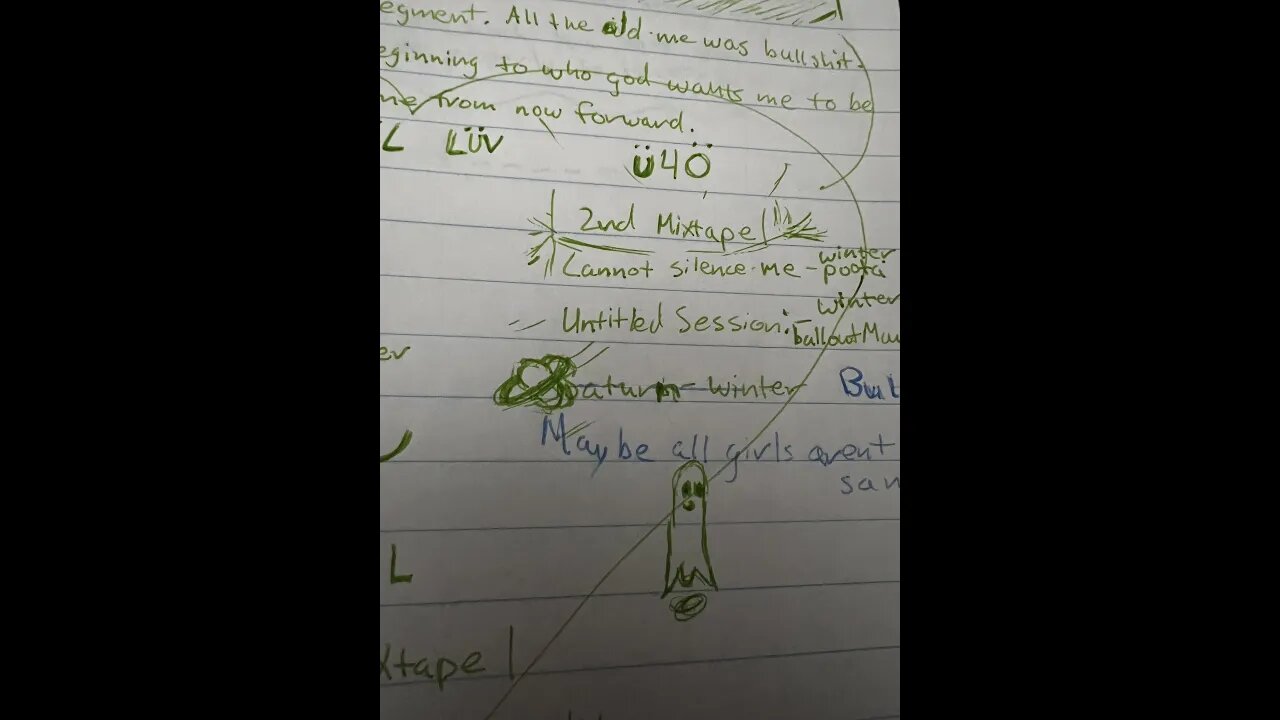 egment. All the old me was bullshit.
eginning to who god wants me to be
me from now forward.
L LÜV Ü4Ö
2nd Mixtape
Cannot silence me - winter poota
Untitled Session: - winter
balloutMau
er
Saturn - winter But
Maybe all girls arent
san
L
xtape